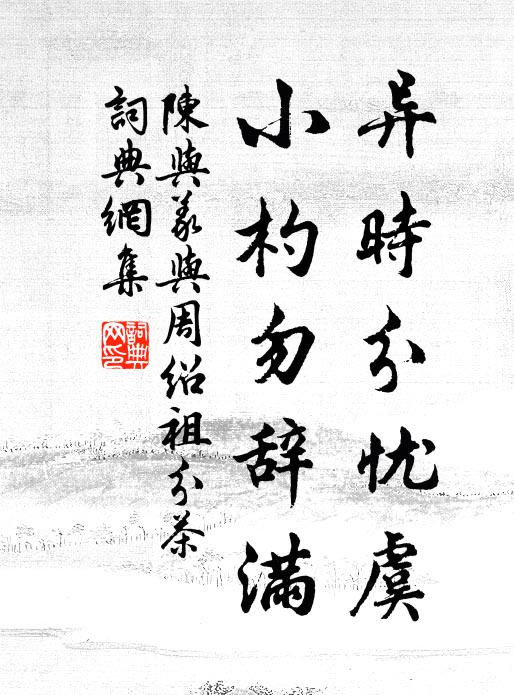 异時分忧虞
小杓勿辞滿
陳與義與周绍祖分茶
詞典網集
詞典
网印